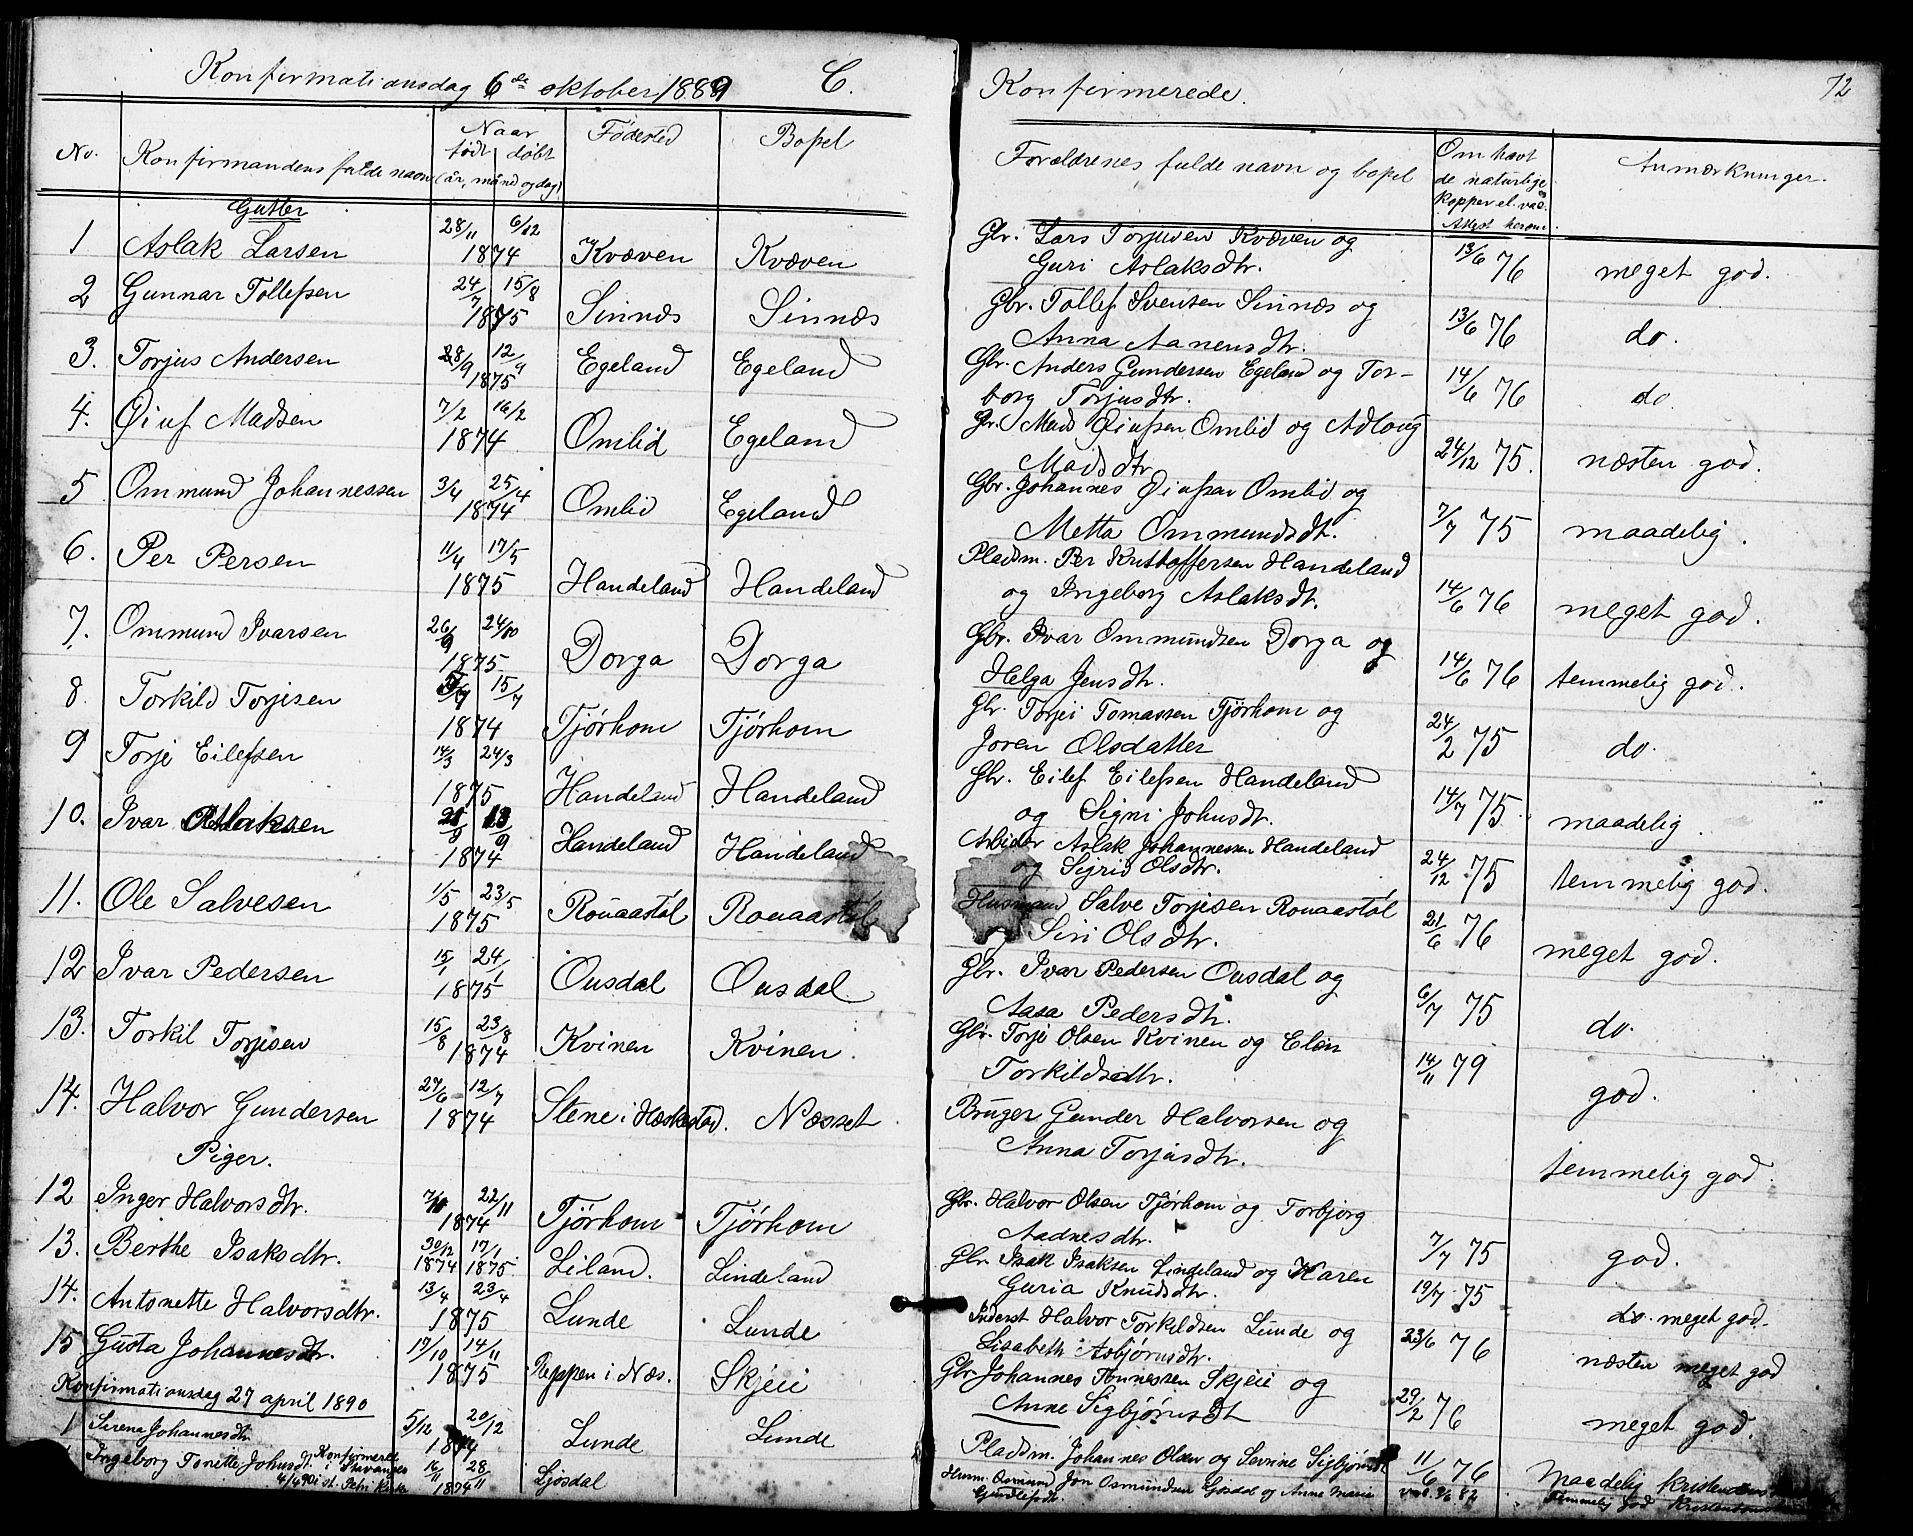 Konfirmationsdag 6de oktober 1889 C.
No. Konfirmandens fulde navn Naar født døbt (år, månd og dag) Fødested Bopel
Gutter
1 Aslak Larsen 28/11 6/12 1874 Kvæven Kvæven
2 Gunnar Tollefsen 24/7 15/8 1875 Sinnæs Sinnæs
3. Torjus Andersen 28/9 12/9 1875 Egeland Egeland
4. Øiuf Madsen 7/2 16/2 1874 Omlid Egeland
5 Ommund Johannessen 3/4 25/4 1874 Omlid Egeland
6. Per Persen 11/4 17/5 1875 Handeland Handeland
7. Ommund Ivarsen 26/9 24/10 1875 Dorga Dorga
8. Torkild Torjisen 15/7 1874 Tjórhom Tjórhom
9 Torje Eilefsen 14/3 24/3 1875 Handeland Handeland
10. Ivar Aslaksen 9 13/9 1874 Handeland Handeland
11. Ole Salvesen 1/5 23/5 1875 Rouaastøl Rouaastøl
12 Ivar Pedersen 15/1 24/1 1875 Ousdal Ousdal
13. Torkil Torjisen 15/8 23/8 1874 Kvinen Kvinen.
14. Halvor Gundersen 27/6 12/7 1874 Stene i Heskestad. Næsset
Piger.
12 Inger Halvorsdtr. 7/10 22/11 1874 Tjórhom Tjórhom
13. Berthe Isaksdtr. 30/12 1874 17/1 1875 Liland. Lindeland
14. Antonette Halvorsdtr. 13/4 23/4 1875 Lunde Lunde
15 Gusta Johannesdtr. 17/10 14/11 1875 Reppen i Næs. Skjeii
Konfirmationsdag 27 april 1890
1 Serena Johannesdtr. 5/12 20/12 1874 Lunde Lunde
Ingeborg Tonette Johnsdt. Konfirmeret i Stavanger
4/4 90 i st. Petri Kirke 16/11 28/11 1874 Ljosdal
Konfirmerede. 72
Forældrenes fulde navn og bopel Om havt de naturlige kopper el. vac. Attest herom. Anmærkninger.
Gbr. Lars Torjusen Kvæven og
Guri Aslaksdtr. 13/6 76 meget god.
Gbr. Tollef Svensen Sinnæs og
Anna Aanensdtr. 13/6 76 do.
Gbr. Anders Gundersen Egeland og Tor-
borg Torjusdtr. 14/6 76 do.
Gbr. Mads Øiufsen Omlid og Adloug
Madsdtr 24/12 75. næsten god.
Gbr. Johannes Øiufsen Omlid og
Metta Ommundsdt. 7/7 75 maadelig.
Pladsm. Per Kristoffersen Handeland
og Ingeborg Aslaksdt. 14/6 76 meget god.
Gbr. Ivar Ommundsen Dorga og
Helga Jensdtr. 14/6 76 temmelig god.
Gbr. Torjei Tomassen Tjórhom og
Joren Olsdatter 24/2 75 do.
Gbr. Eilef Eilefsen Handeland
og Signi Johnsdtr. 14/7 75 maadelig.
Arbider Aslak Johannessen Handeland
og Sigrid Olsdtr. 24/12 75 temmelig god.
Husmand Salve Torjesen Rouaastøl
og Siri Olsdtr. 21/6 76 meget god.
Gbr. Ivar Pedersen Ousdal og
Aasa Pedersdtr. 6/7 75 do.
Gbr. Torje Olsen Kvinen og Elen
Torkildsdtr. 14/11 79 god.
Bruger Gunder Halvorsen og
Anna Torjusdtr. temmelig god.
Gbr. Halvor Olsen Tjórhom og Torbjorg
Aadnesdtr. 7/7 75 god.
Gbr. Isak Isaksen Lindeland og Karen
Guria Knudsdtr. 19/7 75 do. meget god.
Inderst Halvor Torkildsen Lunde og
Lisabeth Asbjørnsdtr. 23/6 76 næsten meget god
Gbr. Johannes Tonnessen Skjeii og
Anne Sigbjørnsdt 29/2 76 meget god.
Pladsm. Johannes Olsen og Sevrine Sigbjørnsdt 11/6 76 Maadelig kristendoms
Husm. Osmund Jon Osmundsen Gjosdal og Anne Marie
Gundlefsdtr. vac. 9/6 82 Temmelig god Kristendoms